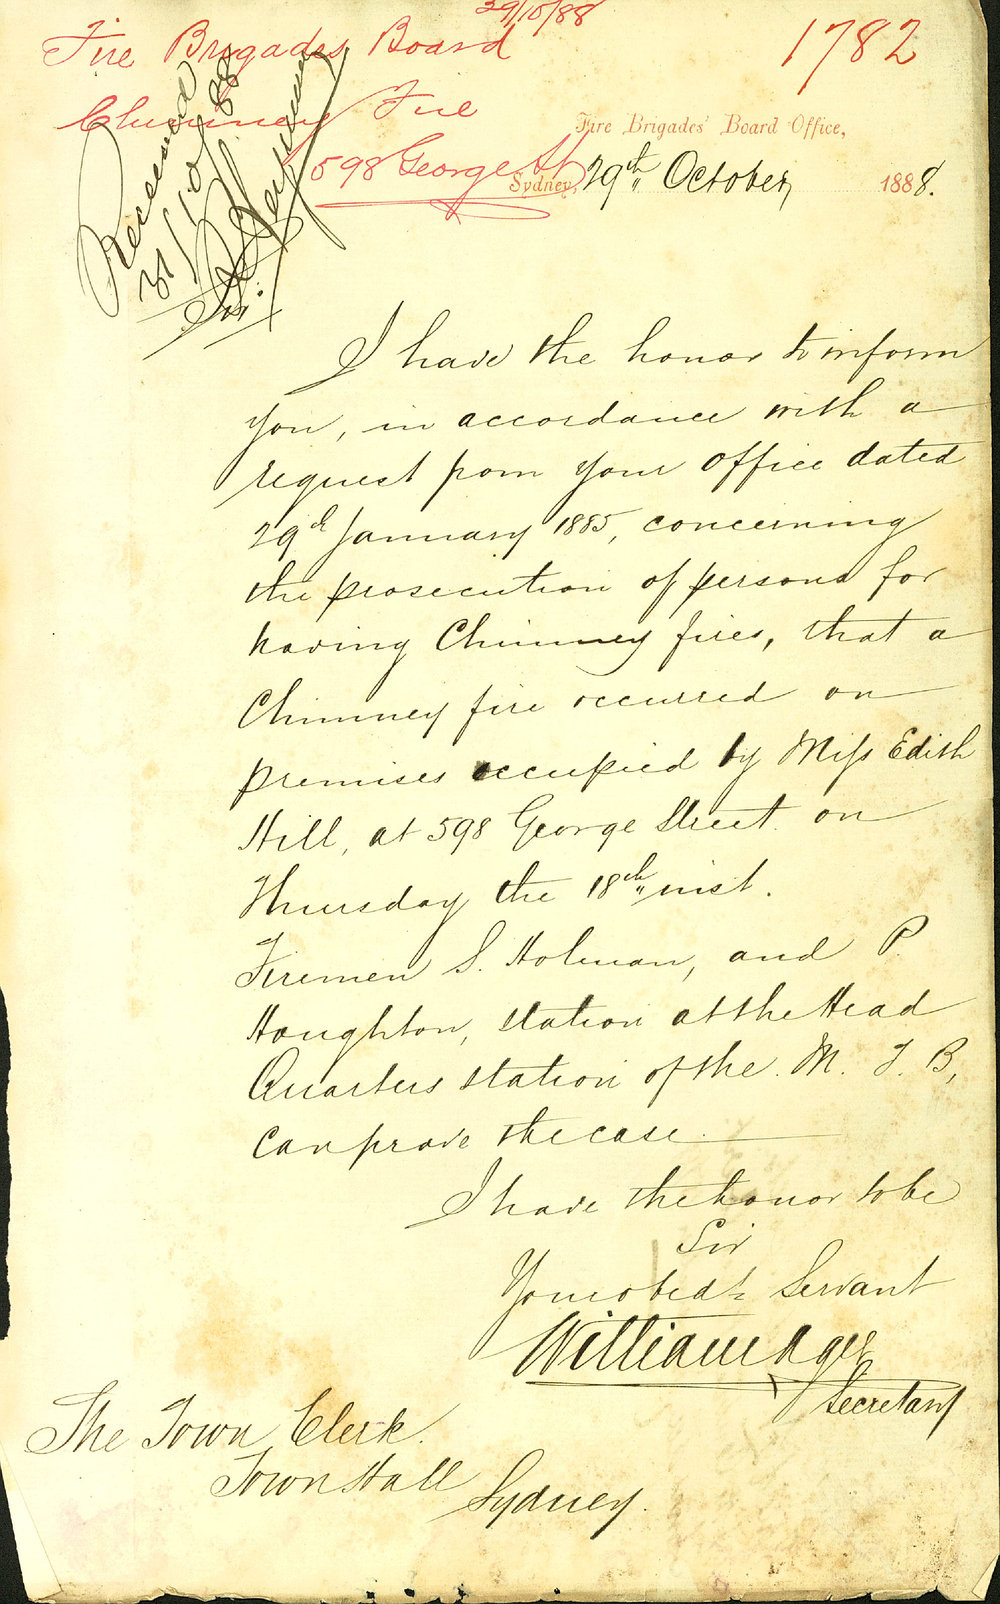 29/10/88
Fire Brigades Board
1782
Chimney Fire
598 George St
Received
31/10/88
Fire Brigades' Board Office,
Sydney, 29th October, 1888.
Sir.
I have the honor to inform
you, in accordance with a
request from your office dated
29th January 1885, concerning
the prosecution of persons for
having Chimney fires, that a
Chimney fire occurred on
premises occupied by Miss Edith
Hill, at 598 George Street on
Thursday the 18th inst.
Firemen S. Holman, and P.
Houghton, station at the Head
Quarters station of the M. F. B,
can prove the case.
I have the honor to be
Sir
Your obedt Servant
William Ager
Secretary
The Town Clerk.
Town Hall
Sydney.